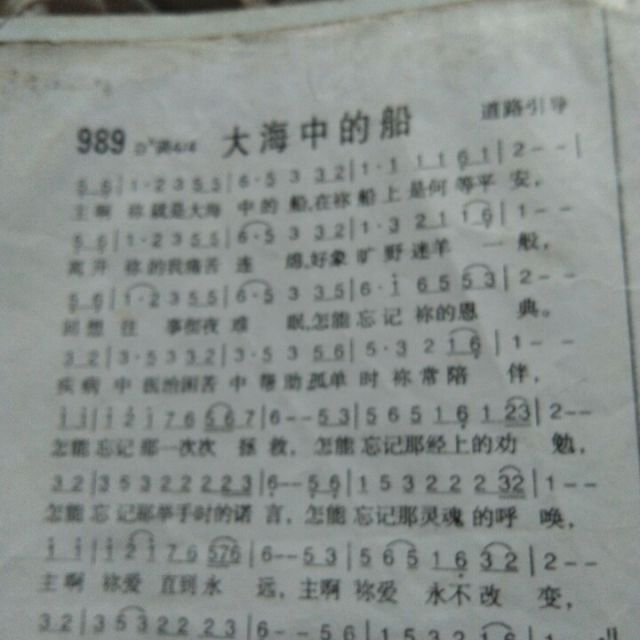 989 大海中的船 道路引导
5 6 | 1 · 2 3 5 5 | 6 · 5 3 3 2 | 1 · 1 1 1 6 1 | 2 - - |
主啊 祢就是大海 中的 船,在祢船上是何等平 安,
5 6 | 1 · 2 3 5 5 | 6 · 5 3 3 2 | 1 · 3 2 1 1 6 | 1 - -
离开 祢的我痛苦 连 绵,好象旷野迷羊 一 般,
5 6 | 1 · 2 3 5 5 | 6 · 5 3 3 5 | 6 · i 6 5 5 3 | 2 - -
回想往 事彻夜难 眠,怎能忘记 祢的恩 典。
3 2 | 3 · 5 3 3 2 | 3 · 5 3 5 6 | 5 · 3 2 1 6 | 1 - -
疾病中 困苦中 帮助,孤单时祢常陪 伴,
i i | i 2 i 7 6 5 6 7 | 6 - - 5 3 | 5 6 5 1 6 1 2 3 | 2 - -
怎能忘记那一次次 拯 救, 怎能忘记那经上的劝 勉,
3 2 | 3 5 3 2 2 2 2 3 | 6 - - 5 6 | 1 5 3 2 2 2 3 2 | 1 - -
怎能忘记那举手时的诺 言, 怎能忘记那灵魂的呼 唤,
i i | i 2 i 7 6 5 7 6 | 6 - - 5 3 | 5 6 5 1 6 3 2 | 2 - -
主啊 祢爱 直到永 远, 主啊 祢爱 永不改 变,